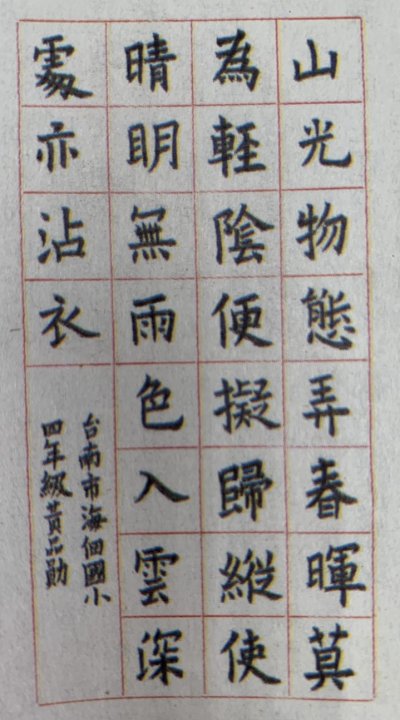 山光物態弄春暉莫
為輕陰便擬歸縱使
晴明無雨色入雲深
處亦沾衣
台南市海佃國小
四年級黃品勛